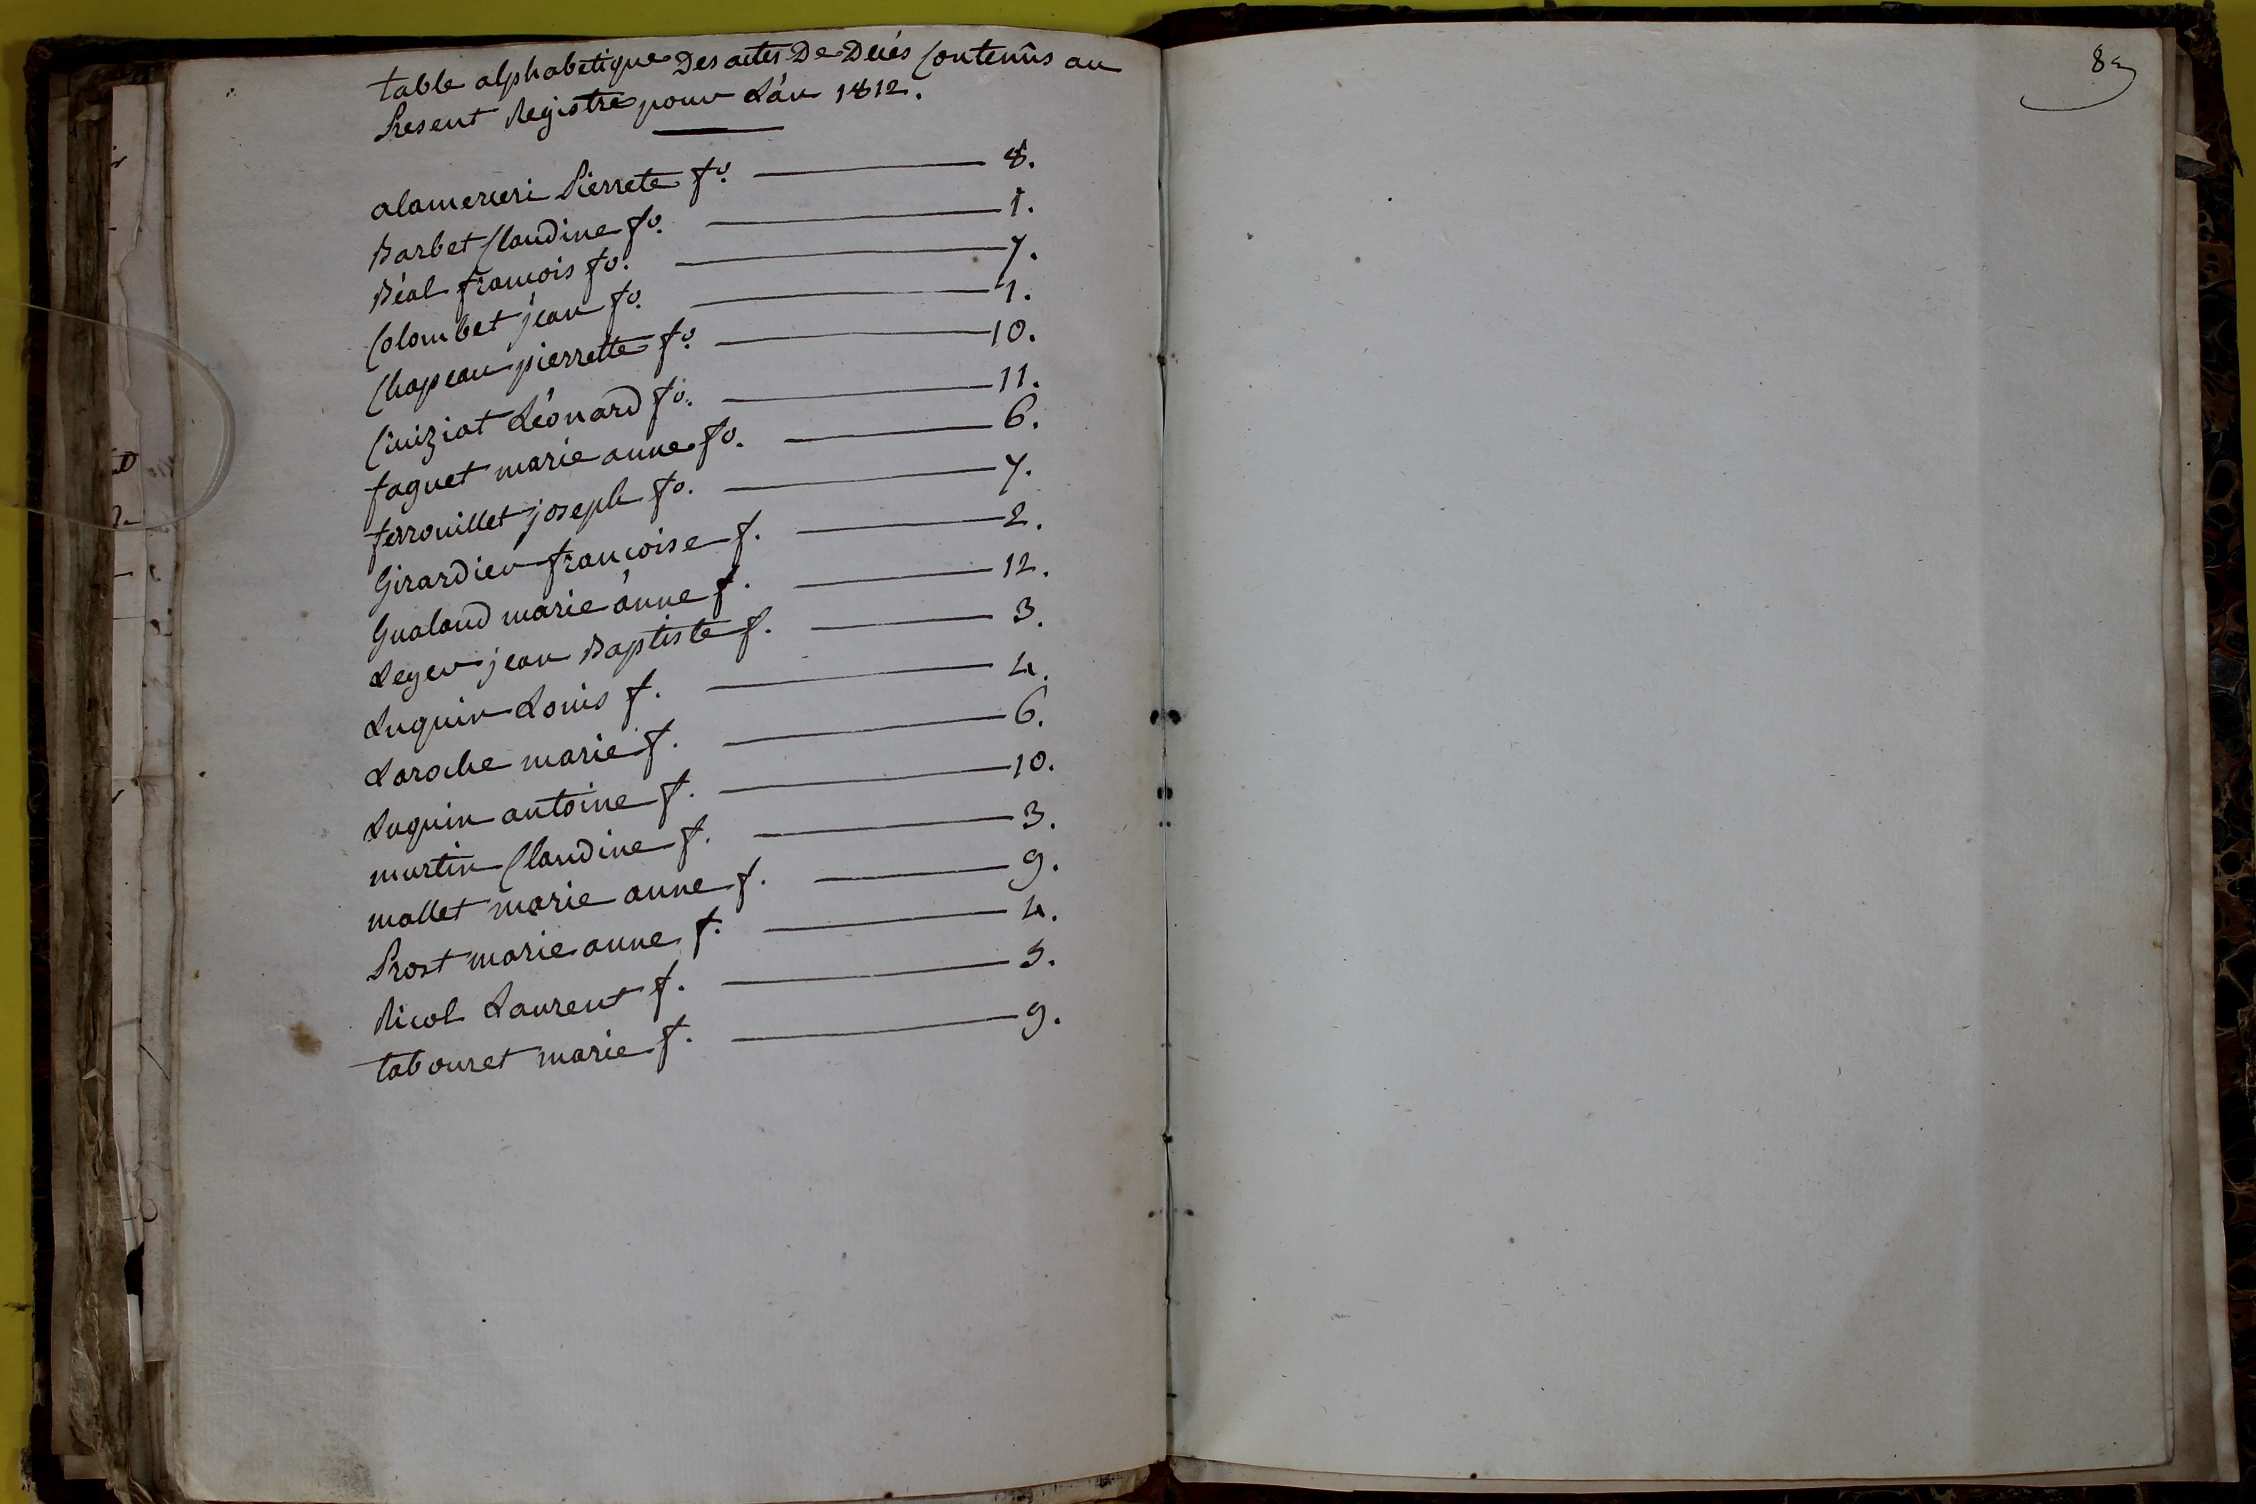 table alphabetique Des actes De Décés Contenûs au
Present Registre pour L'an 1812.
alamerceri Pierrete fo. 8.
Barbet Claudine fo. 1.
Béal francois fo. 7.
Colombet jean fo. 1.
Chapeau pierrette fo. 10.
Ciniziat Léonard fo. 11.
faguet marie anne fo. 6.
ferrouillet joseph fo. 7.
Girardier francoise f. 2.
Gualand marie anne f. 12.
Leger jean Baptiste f. 3.
Luquin Louis f. 4.
Laroche marie f. 6.
Luquin antoine f. 10.
martin Claudine f. 3.
mallet marie anne f. 9.
Prost marie anne f. 4.
Ricol Laurent f. 3.
tabouret marie f. 9.
8